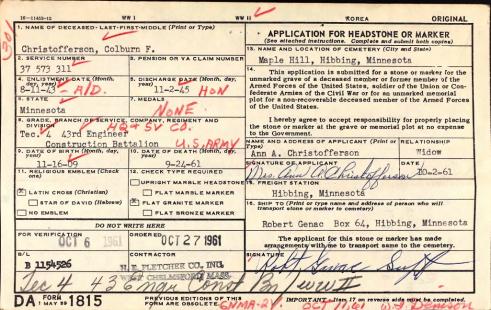 16-11453-12 WW I WW II KOREA ORIGINAL
1. NAME OF DECEASED-LAST-FIRST-MIDDLE (Print or Type)
Christofferson, Colburn F.
2. SERVICE NUMBER
37 573 311
3. PENSION OR VA CLAIM NUMBER
4. ENLISTMENT DATE (Month, day, year)
8-11-43 - A/D.
5. DISCHARGE DATE (Month, day, year)
11-2-45 HON
6. STATE
Minnesota
7. MEDALS
NONE
8. GRADE, BRANCH OF SERVICE, COMPANY, REGIMENT AND DIVISION
HQ + SV CO.
Tec. 4 43rd Engineer
Construction Battalion U.S. ARMY
9. DATE OF BIRTH (Month, day, year)
11-16-09
10. DATE OF DEATH (Month, day, year)
9-24-61
11. RELIGIOUS EMBLEM (Check one)
LATIN CROSS (Christian)
STAR OF DAVID (Hebrew)
NO EMBLEM
12. CHECK TYPE REQUIRED
UPRIGHT MARBLE HEADSTONE
FLAT MARBLE MARKER
FLAT GRANITE MARKER
FLAT BRONZE MARKER
DO NOT WRITE HERE
FOR VERIFICATION
OCT 6 1961
ORDERED
OCT 27 1961
B/L
B 1154526
H. E. FLETCHER CO. INC.
WEST CHELMSFORD, MASS.
Tec 4 43 Engr Const Bn WW II
DA FORM 1 MAY 59 1815
PREVIOUS EDITIONS OF THIS FORM ARE OBSOLETE.
APPLICATION FOR HEADSTONE OR MARKER
(See attached instructions. Complete and submit both copies)
13. NAME AND LOCATION OF CEMETERY (City and State)
Maple Hill, Hibbing, Minnesota
14.
This application is submitted for a stone or marker for the
unmarked grave of a deceased member or former member of the
Armed Forces of the United States, soldier of the Union or Con-
federate Armies of the Civil War or for an unmarked memorial
plot for a non-recoverable deceased member of the Armed Forces
of the United States.
I hereby agree to accept responsibility for properly placing
the stone or marker at the grave or memorial plot at no expense
to the Government.
NAME AND ADDRESS OF APPLICANT (Print or Type)
Ann A. Christofferson
RELATIONSHIP
Widow
SIGNATURE OF APPLICANT
Mrs. Ann A. Christofferson
DATE
10-2-61
15. FREIGHT STATION
Hibbing, Minnesota
16. SHIP TO (Print or type name and address of person who will
transport stone or marker to cemetery)
Robert Genac Box 64, Hibbing, Minnesota
The applicant for this stone or marker has made
arrangements with me to transport same to the cemetery.
IMPORTANT-Item 17 on reverse side must be completed.
OCT 11 61